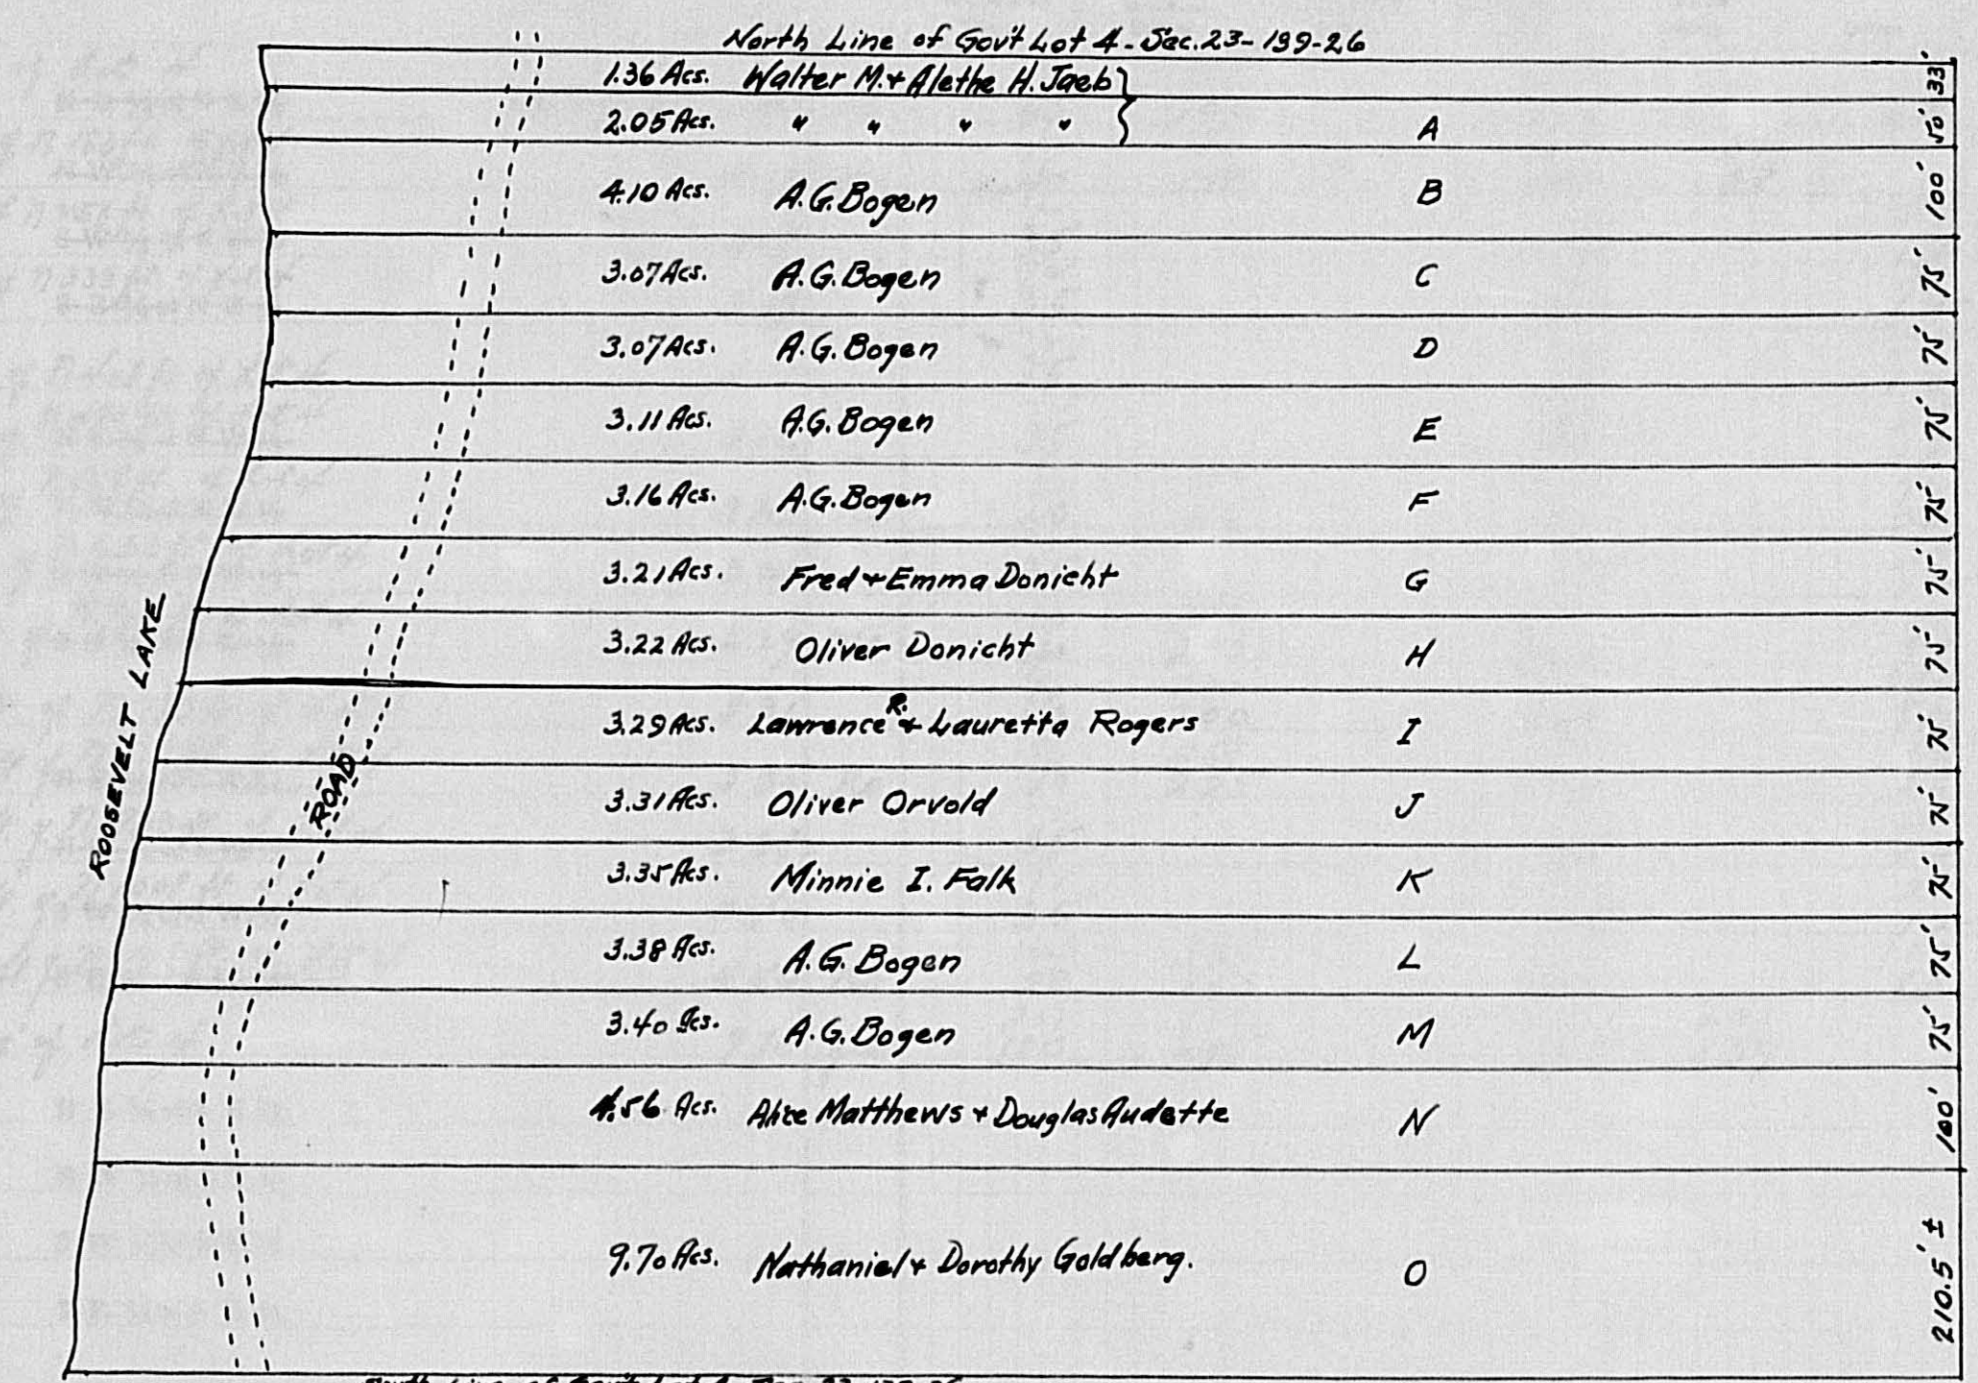 North Line of Gov't Lot 4 - Sec. 23-139-26
1.36 Acs. Walter M. + Alethe H. Jaeb 33'
2.05 Acs. " " " " A 50'
4.10 Acs. A.G. Bogen B 100'
3.07 Acs. A.G. Bogen C 75'
3.07 Acs. A.G. Bogen D 75'
3.11 Acs. A.G. Bogen E 75'
3.16 Acs. A.G. Bogen F 75'
3.21 Acs. Fred + Emma Donicht G 75'
3.22 Acs. Oliver Donicht H 75'
3.29 Acs. Lawrence R. + Lauretta Rogers I 75'
3.31 Acs. Oliver Orvold J 75'
3.35 Acs. Minnie I. Falk K 75'
3.38 Acs. A.G. Bogen L 75'
3.40 Acs. A.G. Bogen M 75'
4.56 Acs. Alice Matthews + Douglas Audette N 100'
9.70 Acs. Nathaniel + Dorothy Goldberg. O 210.5' ±
ROOSEVELT LAKE
ROAD
South Line of Gov't Lot 4 - Sec. 23-139-26